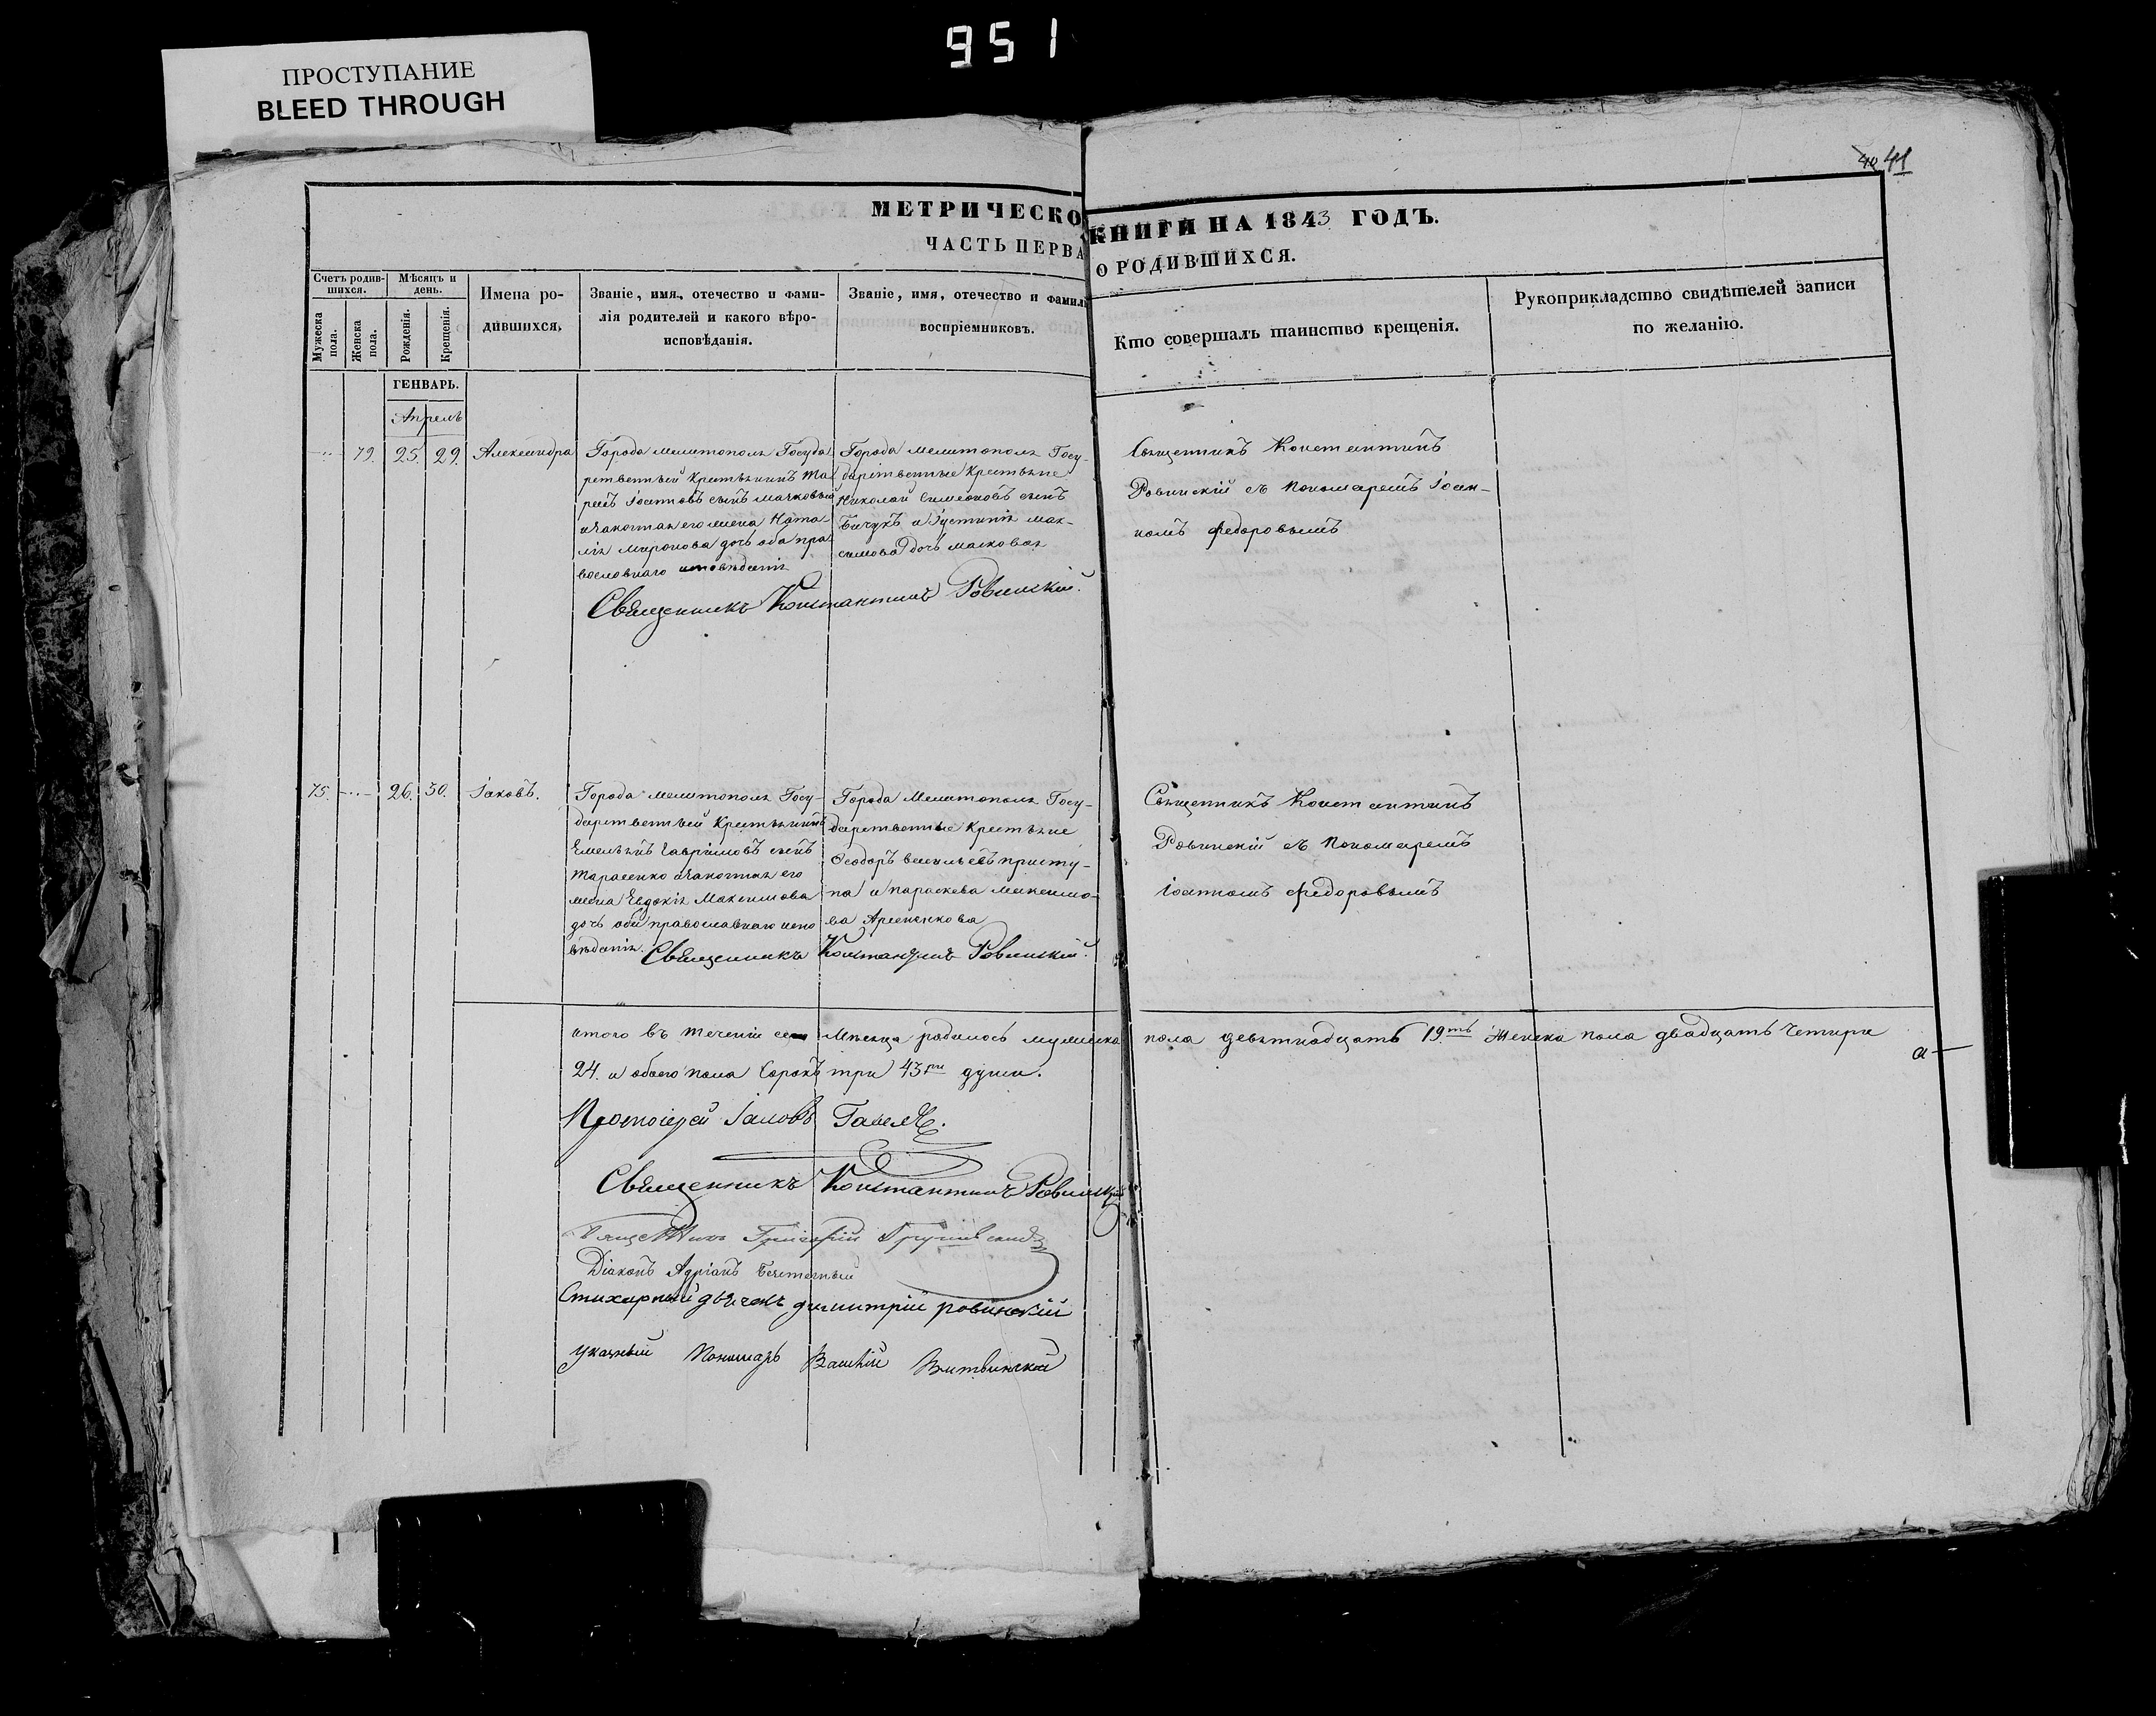 951
ПРОСТУПАНИЕ
BLEED THROUGH
40 41
МЕТРИЧЕСКО КНИГИ НА 1843 ГОДЪ.
ЧАСТЬ ПЕРВА О РОДИВШИХСЯ.
Счетъ родив-
шихся.
Мужеска пола.
Женска пола.
Мѣсяцъ и
день.
Рожденія.
Крещенія.
Имена ро-
дившихся.
Званіе, имя, отечество и фами-
лія родителей и какого вѣро-
исповѣданія.
Званіе, имя, отечество и фамил
воспріемниковъ.
Кто совершалъ таинство крещенія.
Рукоприкладство свидѣтелей записи
по желанію.
ГЕНВАРЬ.
Апрель
79. 25. 29. Александра
Города Мелитополя Госуда
рственный Крестьянинъ
Іоанновъ сынъ
и законная его жена Ната
лія Миронова дочь оба пра
вославнаго исповѣданія
Города Мелитополя Госу-
дарственные Крестьяне
Николай Симеоновъ сынъ
Бичукъ и Іустинія Мак-
симова дочь
Священникъ Константинъ
Ровинскій съ пономаремъ Іоан-
номъ Федоровымъ
Священникъ Константинъ Ровинскій.
75. 26. 30. Іаковъ.
Города Мелитополя Госу-
дарственный Крестьянинъ
Емельянъ Гавріиловъ сынъ
Тарасенко и законная его
жена Евдокія Максимова
дочь оба православнаго испо
вѣданія.
Города Мелитополя Госу-
дарственные Крестьяне
Феодоръ Васильевъ присту-
па и Параскева Максимо-
ва
Священникъ Константинъ
Ровинскій съ пономаремъ
Іоанномъ Федоровымъ
Священникъ Константинъ Ровинскій.
итого въ теченіи сего мѣсяца родилось мужеска пола девятнадцать 19ть Женска пола двадцать Четыри
24. и обоего пола Сорокъ три 43ри души.
Протоіерей Іаковъ
Священникъ Константинъ Ровинскій
Священникъ Григорій
Діаконъ Адріанъ
Стихарный дьячекъ Димитрій Ровинскій
указный Пономарь